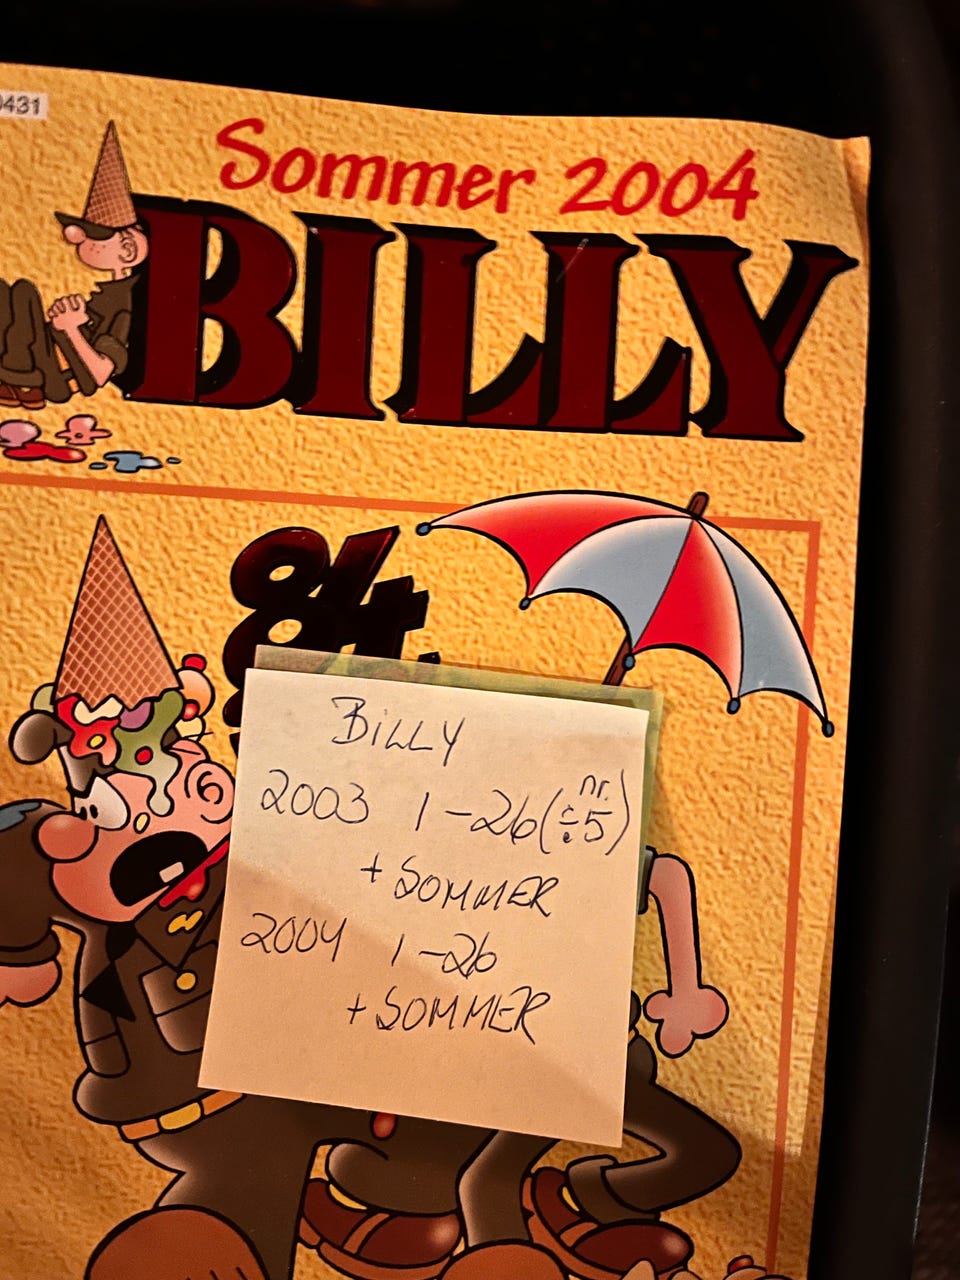 0431
Sommer 2004
BILLY
BILLY
2003 1-26 (÷ nr. 5)
+ SOMMER
2004 1-26
+ SOMMER